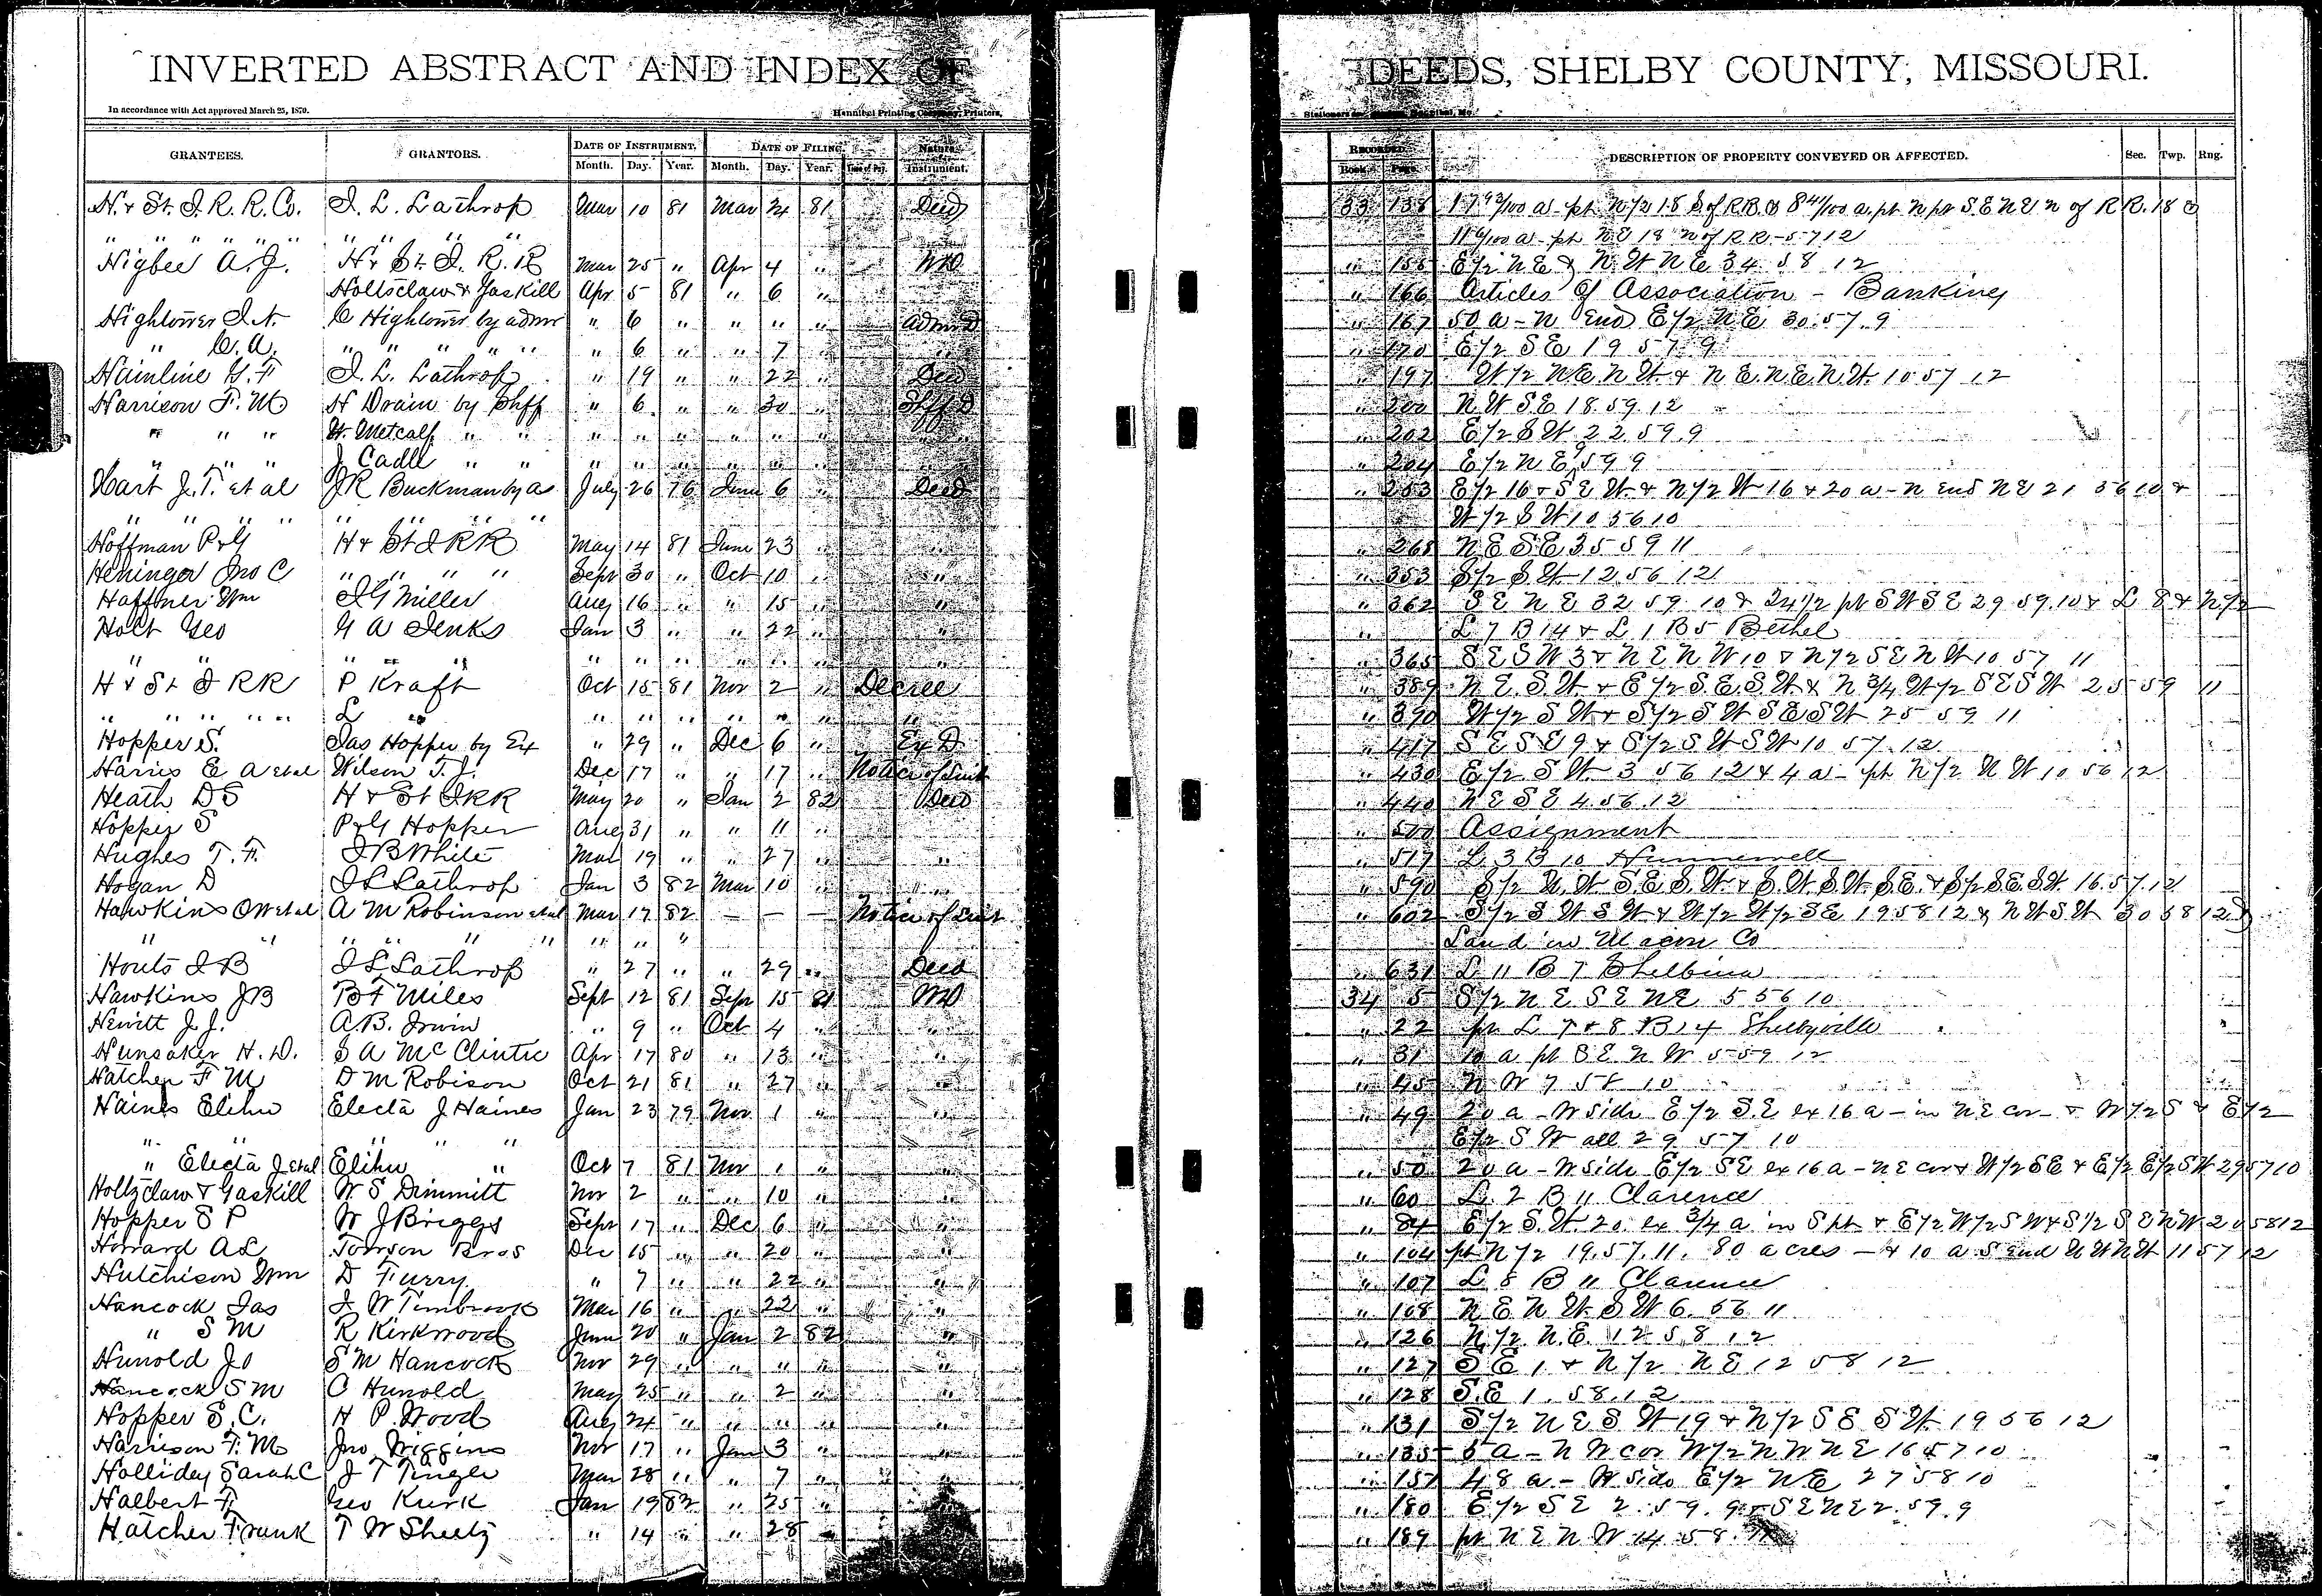 INVERTED ABSTRACT AND INDEX OF DEEDS, SHELBY COUNTY, MISSOURI.
In accordance with Act approved March 25, 1870. Hannibal Printing Company, Printers,
GRANTEES. GRANTORS. DATE OF INSTRUMENT. DATE OF FILING. Nature Instrument. RECORDED DESCRIPTION OF PROPERTY CONVEYED OR AFFECTED. Sec. Twp. Rng.
Month. Day. Year. Month. Day. Year. Book Page
H. & St. J. R. R. Co. J. L. Lathrop Mar 10 81 Mar 24 81 Deed 33 138 a pt N/2 18 S of R.R. & 8 a. pt N pt S E N E N of R R. 18 &
" " " " " " " " " a pt N E 18 N of R R - 57 12
Higbee A. J. H & St. J. R. R Mar 25 " Apr 4 " WD " 155 E/2 N E & N. W N E 34 58 12
Holtsclaw & Gaskill Apr 5 81 " 6 " " 166 Articles of Association - Banking
Hightower J. N. C Hightower by admr " 6 " " " " Adm D " 167 50 a - N End E/2 N E 30. 57. 9
" C. A. " " " " " " 6 " " 7 " " 170 E/2 S E 19 57 9
Hainline G. F J. L. Lathrop " 19 " " 22 " Deed " 197 W/2 N E N W. & N E. N E. N W. 10 57 12
Harrison F. M H Drain by Shff " 6 " " 30 " Shff D " 200 N W S E 18. 59. 12
" " " W. Metcalf " " " " " " " " " 202 E/2 S W 22 59 9
" " " J Cadle " " " " " " " " " 204 E/2 N E 59 9
Hart J. T. et al J R Buckman by a July 26 76 June 6 " Deed " 253 E/2 16 & S E W & N/2 W 16 & 20 a - N End N E 21 56 10 &
" " " " " " " " W/2 S W 10 56 10
Hoffman P & G H & St J R R May 14 81 June 23 " " 265 N E S E 35 59 11
Heninger Jno C " " " " Sept 30 " Oct 10 " " " 353 S/2 S W 12 56 12
Haffner Wm J G Miller Aug 16 " " 15 " " " 362 S E N E 32 59 10 & 24 1/2 pt S W S E 29 59. 10 & L 8 & N/2
Holt Geo G A Jenks Jan 3 " " 22 " " " L 7 B 14 & L 1 B 5 Bethel
" " " " " " " " " " " " " " 365 S E S W 3 & N E N W 10 & N/2 S E N W 10 57 11
H & St J RR P Kraft Oct 15 81 Nov 2 " Decree " 389 N E. S. W & E/2 S. E. S. W & N 3/4 W/2 S E S W 25 59 11
" " " " " L " " " " " " " " " 390 W/2 S W & S/2 S W S E S W 25 59 11
Hopper S. Jas Hopper by Ex " 29 " Dec 6 " Ex D " 417 S E S E 9 & S/2 S W S W 10 57. 12.
Harris E A et al Wilson T. J. Dec 17 " " 17 " Notice of Suit " 430 E/2 S W 3 56 12 & 4 a - pt N/2 N W 10 56 12
Heath D S H & St J RR May 20 " Jan 2 82 Deed " 440 N E S E 4. 56. 12
Hopper S P & G Hopper Aug 31 " " 11 " " 500 Assignment
Hughes T. F. J B White Mar 19 " " 27 " " " 517 L 3 B 10 Hunnewell
Hogan D J L Lathrop Jan 3 82 Mar 10 " " " 590 S/2 N. W S. E S. W & S. W S W. S E. & S/2 S E. S W. 16. 57. 12
Hawkins O W et al A M Robinson et al Mar 17 82 — — — Notice of Suit " 602 S/2 S W S W & W/2 W/2 S E 19 58 12 & N W S W 30 58 12 &
" " " " " " " " " Land in Macon Co
Houts J B J L Lathrop " 27 " " 29 " Deed " 631 L 11 B 7 Shelbina
Hawkins J B B F Miles Sept 12 81 Sept 15 81 WD 34 5 S/2 N E S E N E 5 56 10
Hewitt J. J. A. B. Irwin " 9 " Oct 4 " " " 22 pt L 7 & 8 B 14 Shelbyville
Hunsaker H. D. S A McClintic Apr 17 80 " 13 " " " 31 10 a pt S E N W 5 59 12
Hatcher F M D M Robison Oct 21 81 " 27 " " " 45 N W 7 58 10
Haines Elihu Electa J Haines Jan 23 79 Nov. 1 " " " 49 20 a - W side E/2 S. E ex 16 a - in N E cor - & W/2 S & E/2
" " " " E/2 S W all 29 57 10
" Electa J et al Elihu " Oct 7 81 Nov 1 " " " 50 20 a - W side E/2 S E ex 16 a - N E cor & W/2 S E & E/2 E/2 S W 29 57 10
Holtzclaw & Gaskill W. S Dimmitt Nov 2 " " 10 " " " 60 L. 2 B 11 Clarence
Hopper S P W J Briggs Sept 17 " Dec 6 " " " 84 E/2 S. W. 20. ex 3/4 a in S pt & E/2 W/2 S W & S 1/2 S E N W 20 58 12
Howard A L Towson Bros Dec 15 " " 20 " " " 104 pt N/2 19. 57. 11. 80 acres - & 10 a S End N W N W 11 57 12
Hutchison Wm D Furry " 7 " " 22 " " " 107 L 8 B 11 Clarence
Hancock Jas J W Timbrook Mar 16 " " 22 " " " 108 N E N W. S W 6. 56 11
" S M R Kirkwood June 20 " Jan 2 82 " " 126 N/2 N. E. 12 58 12
Hunold Jo S M Hancock Nov 29 " " " " " " 127 S E 1 & N/2 N E 12 58 12
Hancock S M C Hunold May 25 " " 2 " " " 128 S. E 1. 58. 12
Hopper S. C. H P. Wood Aug 24 " " " " " " 131 S/2 N E S W 19 & N/2 S E S W. 19 56 12
Harrison F. M Jno Wiggins Nov 17 " Jan 3 " " 135 5 a - N W cor W/2 N W N E 16 57 10
Holliday Sarah C J T Tingle Mar 28 " " 7 " " " 151 48 a - W side E/2 N E 27 58 10
Halbert F. Geo Kirk Jan 19 82 " 25 " " " 180 E/2 S E 2. 59. 9 & S E N E 2. 59. 9
Hatcher Frank T W Sheetz " 14 " " 28 " " 189 pt N E N W 14 58.